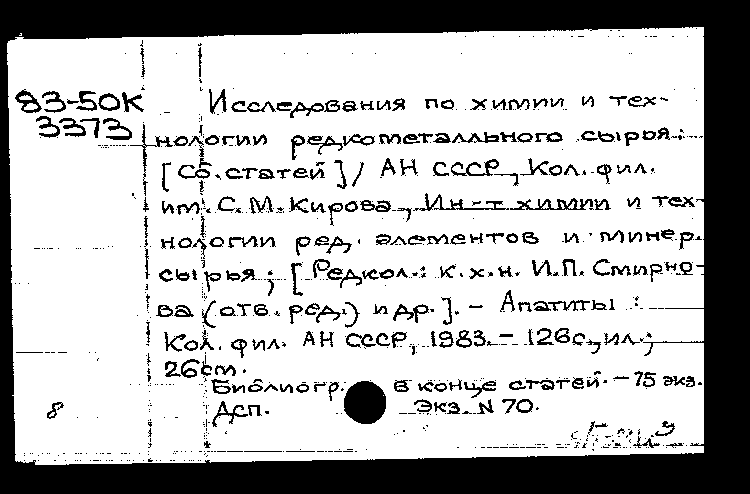 83-50К
3373
Исследования по химии и тех-
нологии редкометалльного сырья:
[Сб. статей] / АН СССР, Кол. фил.
им. С. М. Кирова, Ин-т химии и тех-
нологии ред. элементов и минер.
сырья; [Редкол.: к.х.н. И.П. Смирно-
ва (отв. ред.) и др.]. - Апатиты :
Кол. фил. АН СССР, 1983. - 126с., ил.;
26см.
Библиогр. в конце статей. - 75 экз.
Дсп. Экз. N 70.
8